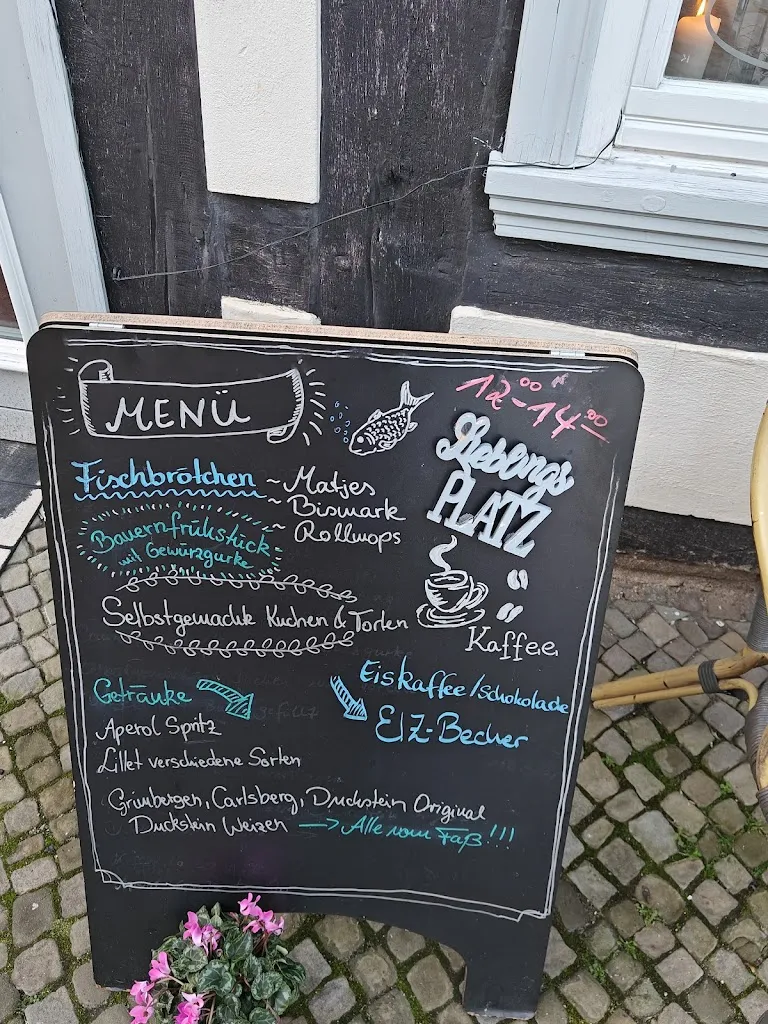 MENÜ
12⁰⁰-14⁰⁰
Lieblings
PLATZ
Fischbrötchen ~ Matjes
~ Bismark
~ Rollmops
Bauernfrühstück
mit Gewürzgurke
Selbstgemachte Kuchen & Torten
Kaffee
Getränke
Eiskaffee/Schokolade
EIZ-Becher
Aperol Spritz
Lillet verschiedene Sorten
Grimbergen, Carlsberg, Duckstein Original
Duckstein Weizen → Alle vom Faß!!!